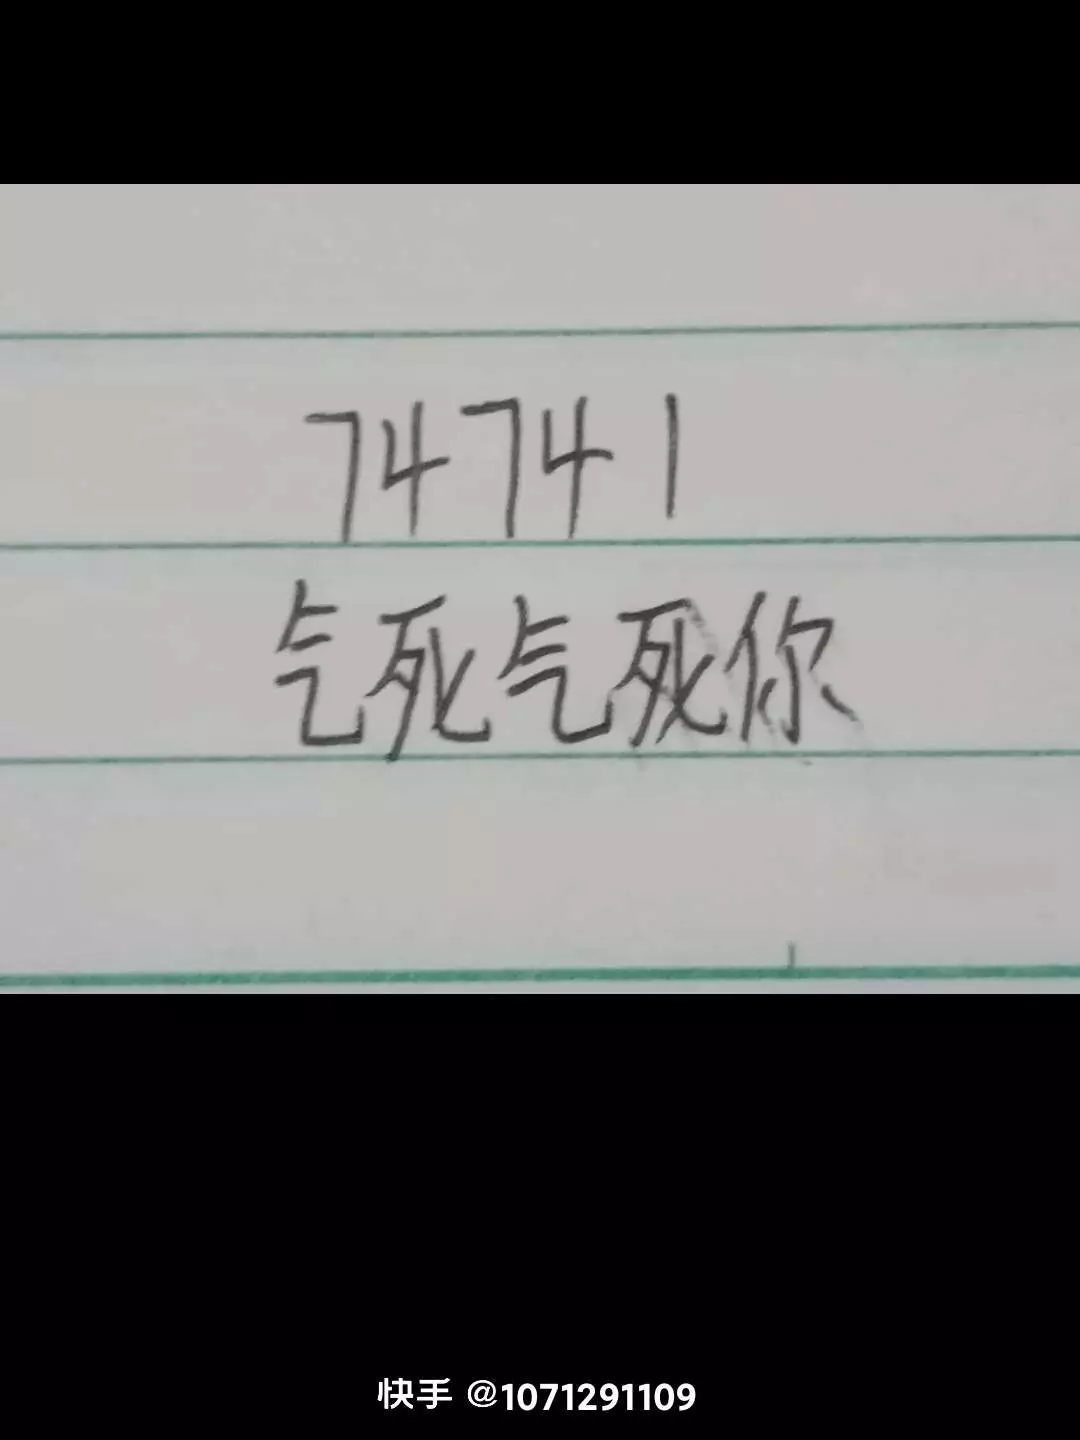 74741
气死气死你
快手 @1071291109